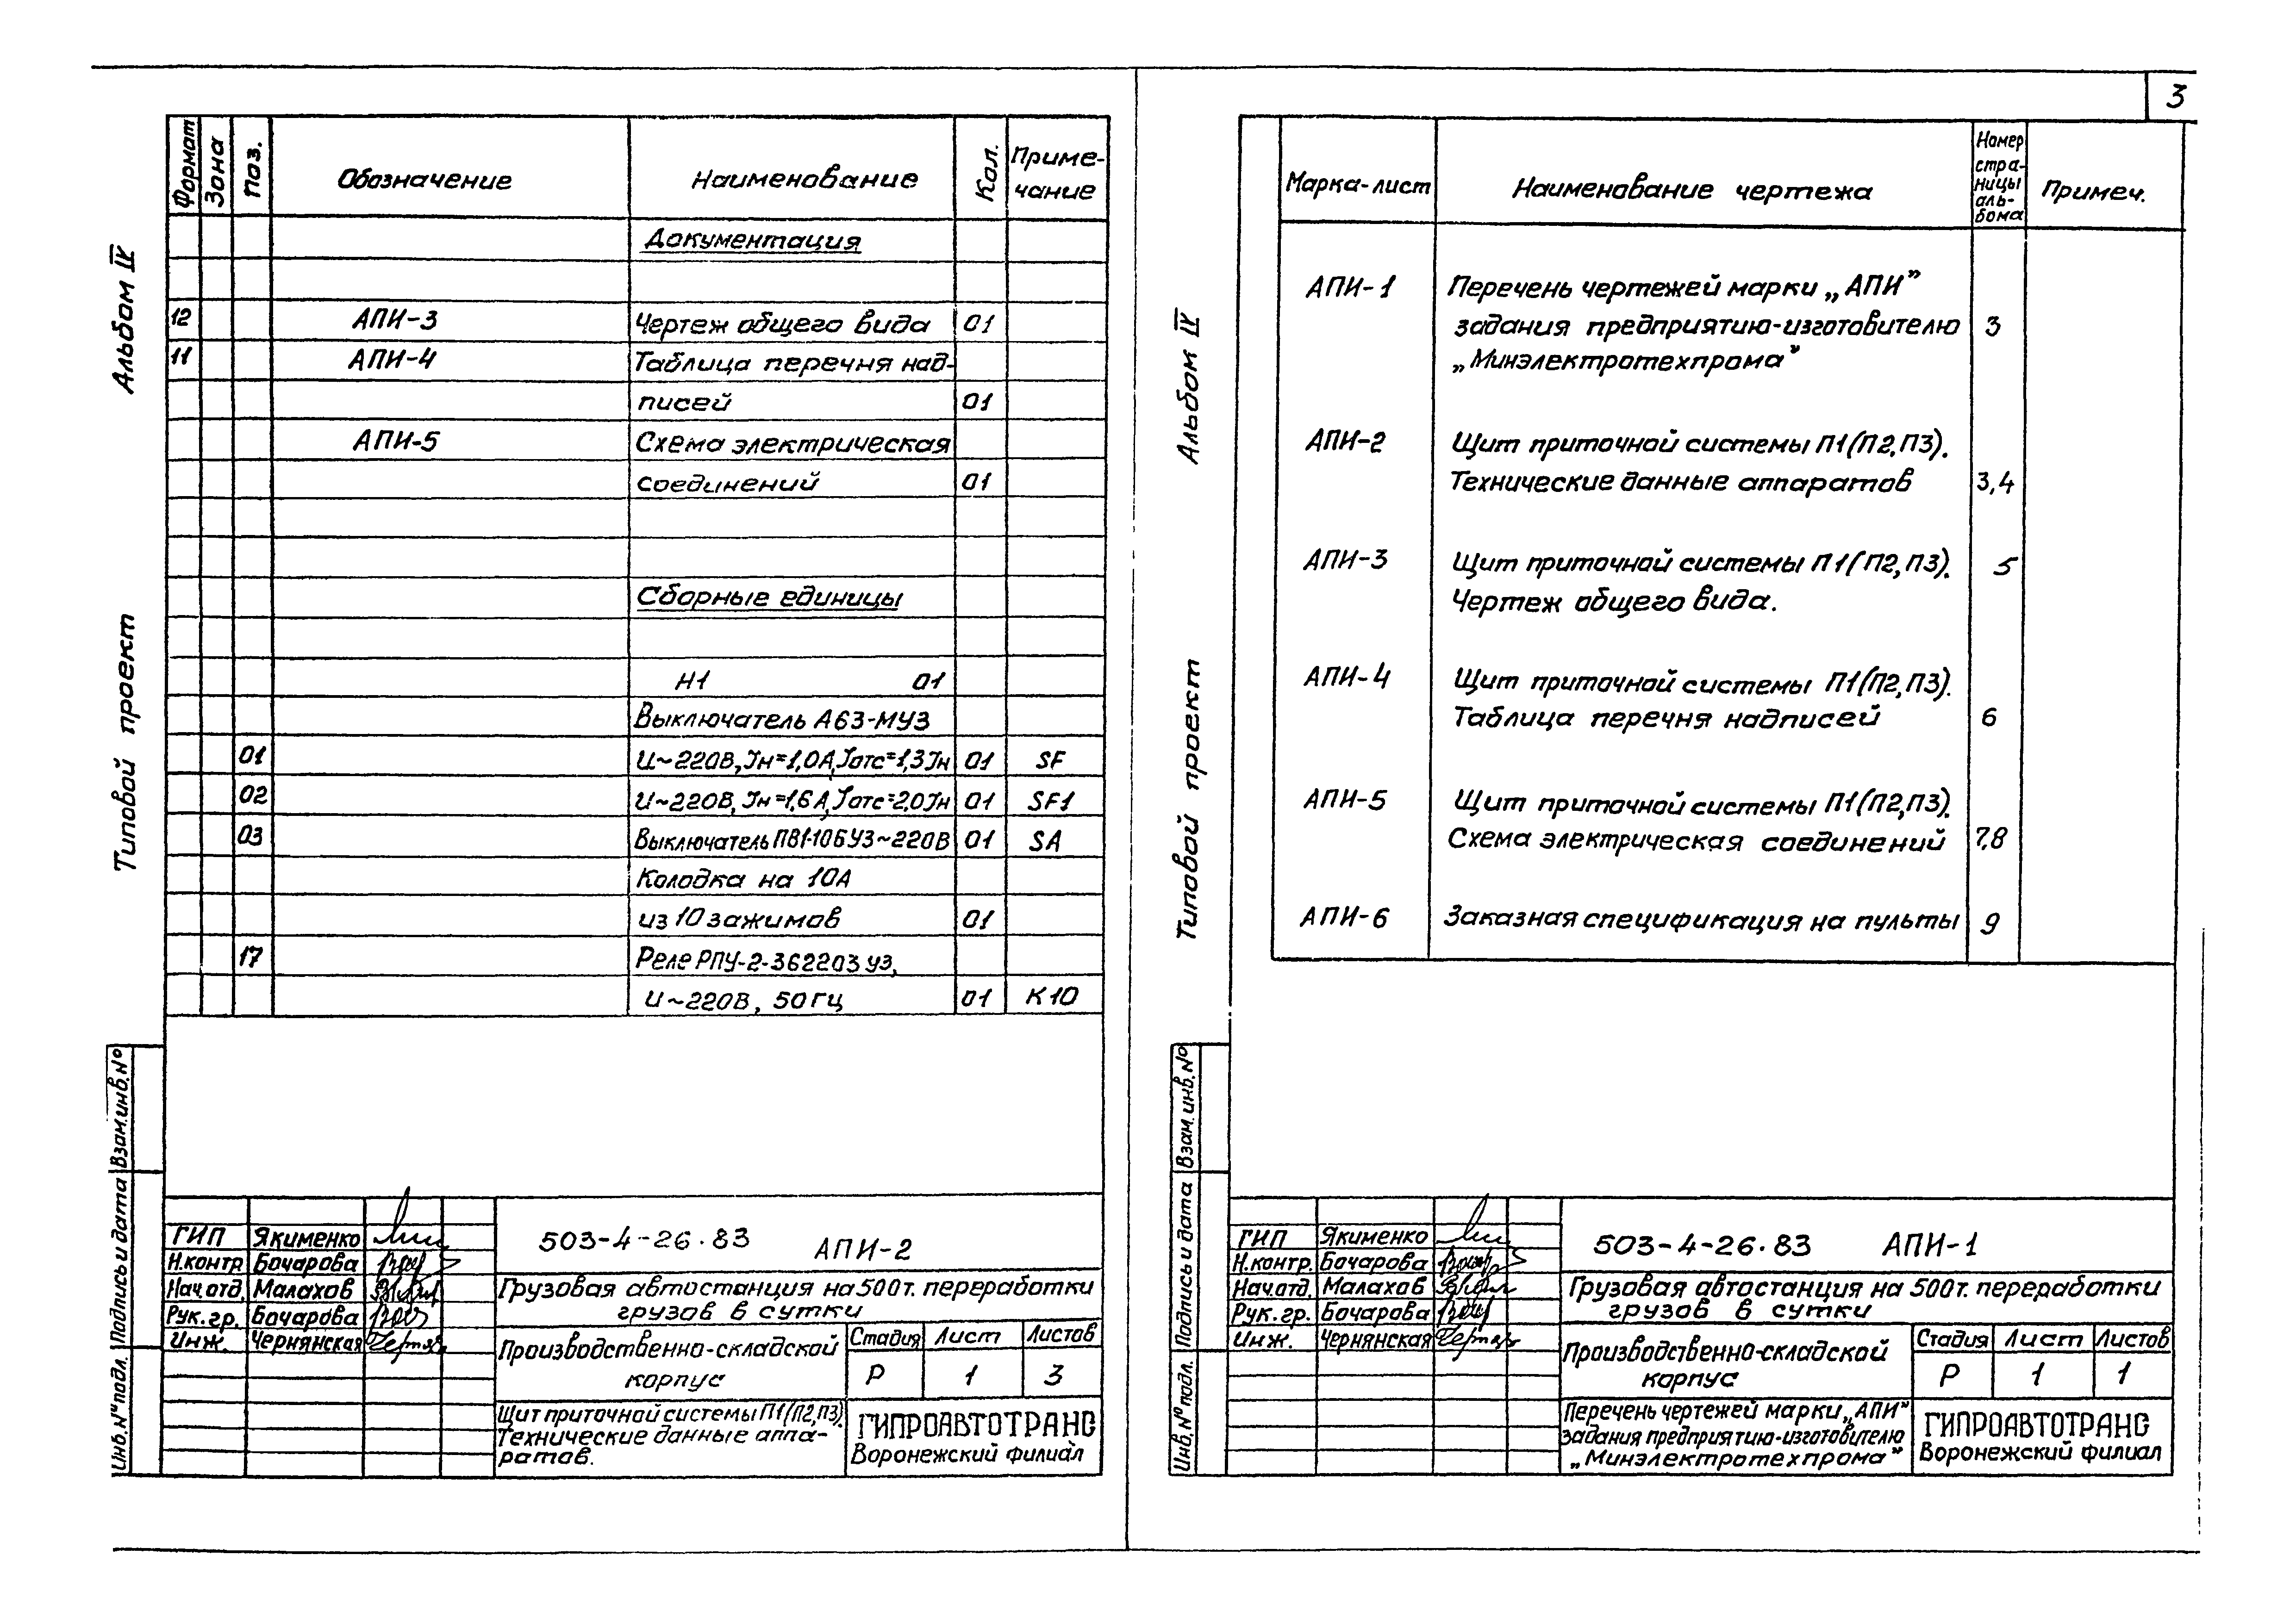 3
Альбом IV
Типовой проект
Формат Зона Поз. Обозначение Наименование Кол. Приме-
чание
Документация
12 АПИ-3 Чертеж общего вида 01
11 АПИ-4 Таблица перечня над-
писей 01
АПИ-5 Схема электрическая
соединений 01
Сборные единицы
Н1 01
Выключатель А63-МУЗ
01 U~220В, Iн=1,0А, Iотс=1,3Iн 01 SF
02 U~220В, Iн=1,6А, Iотс=2,0Iн 01 SF1
03 Выключатель ПВ1-10БУЗ~220В 01 SA
Колодка на 10А
из 10 зажимов 01
17 Реле РПУ-2-362203 УЗ,
U~220В, 50Гц 01 К10
Инв.№ подл. Подпись и дата Взам.инв.№
ГИП Якименко
Н.контр Бочарова
Нач.отд. Малахов
Рук.гр. Бочарова
Инж. Чернянская
503-4-26.83 АПИ-2
Грузовая автостанция на 500т. переработки
грузов в сутки
Производственно-складской
корпус
Стадия Лист Листов
Р 1 3
Щит приточной системы П1(П2,П3).
Технические данные аппа-
ратов.
ГИПРОАВТОТРАНС
Воронежский филиал
Альбом IV
Типовой проект
Марка-лист Наименование чертежа Номер
стра-
ницы
аль-
бома Примеч.
АПИ-1 Перечень чертежей марки „АПИ”
задания предприятию-изготовителю 3
„Минэлектротехпрома”
АПИ-2 Щит приточной системы П1(П2,П3).
Технические данные аппаратов 3,4
АПИ-3 Щит приточной системы П1(П2,П3). 5
Чертеж общего вида.
АПИ-4 Щит приточной системы П1(П2,П3).
Таблица перечня надписей 6
АПИ-5 Щит приточной системы П1(П2,П3).
Схема электрическая соединений 7,8
АПИ-6 Заказная спецификация на пульты 9
Инв.№ подл. Подпись и дата Взам.инв.№
ГИП Якименко
Н.контр. Бочарова
Нач.отд. Малахов
Рук.гр. Бочарова
Инж. Чернянская
503-4-26.83 АПИ-1
Грузовая автостанция на 500т. переработки
грузов в сутки
Производственно-складской
корпус
Стадия Лист Листов
Р 1 1
Перечень чертежей марки „АПИ”
задания предприятию-изготовителю
„Минэлектротехпрома”
ГИПРОАВТОТРАНС
Воронежский филиал